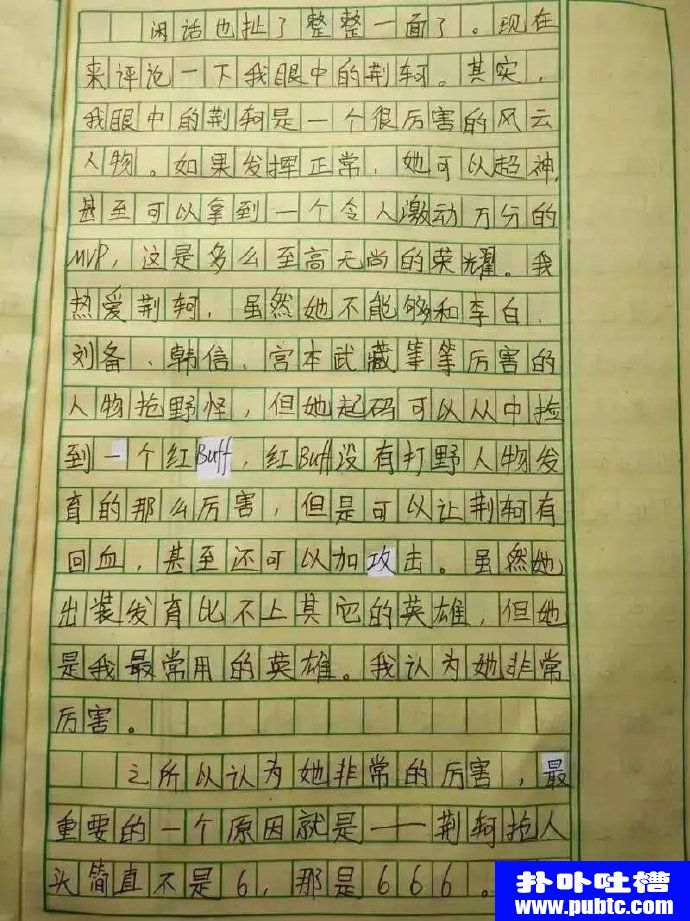 闲话也扯了整整一面了。现在
来评论一下我眼中的荆轲。其实,
我眼中的荆轲是一个很厉害的风云
人物。如果发挥正常,她可以超神,
甚至可以拿到一个令人激动万分的
MVP,这是多么至高无尚的荣耀。我
热爱荆轲,虽然她不能够和李白、
刘备、韩信、宫本武藏等等厉害的
人物抢野怪,但她起码可以从中捡
到一个红Buff,红Buff没有打野人物发
育的那么厉害,但是可以让荆轲有
回血,甚至还可以加攻击。虽然她
出装发育比不上其它的英雄,但她
是我最常用的英雄。我认为她非常
厉害。
之所以认为她非常的厉害,最
重要的一个原因就是——荆轲抢人
头简直不是6,那是666。
扑卟吐槽
www.pubtc.com